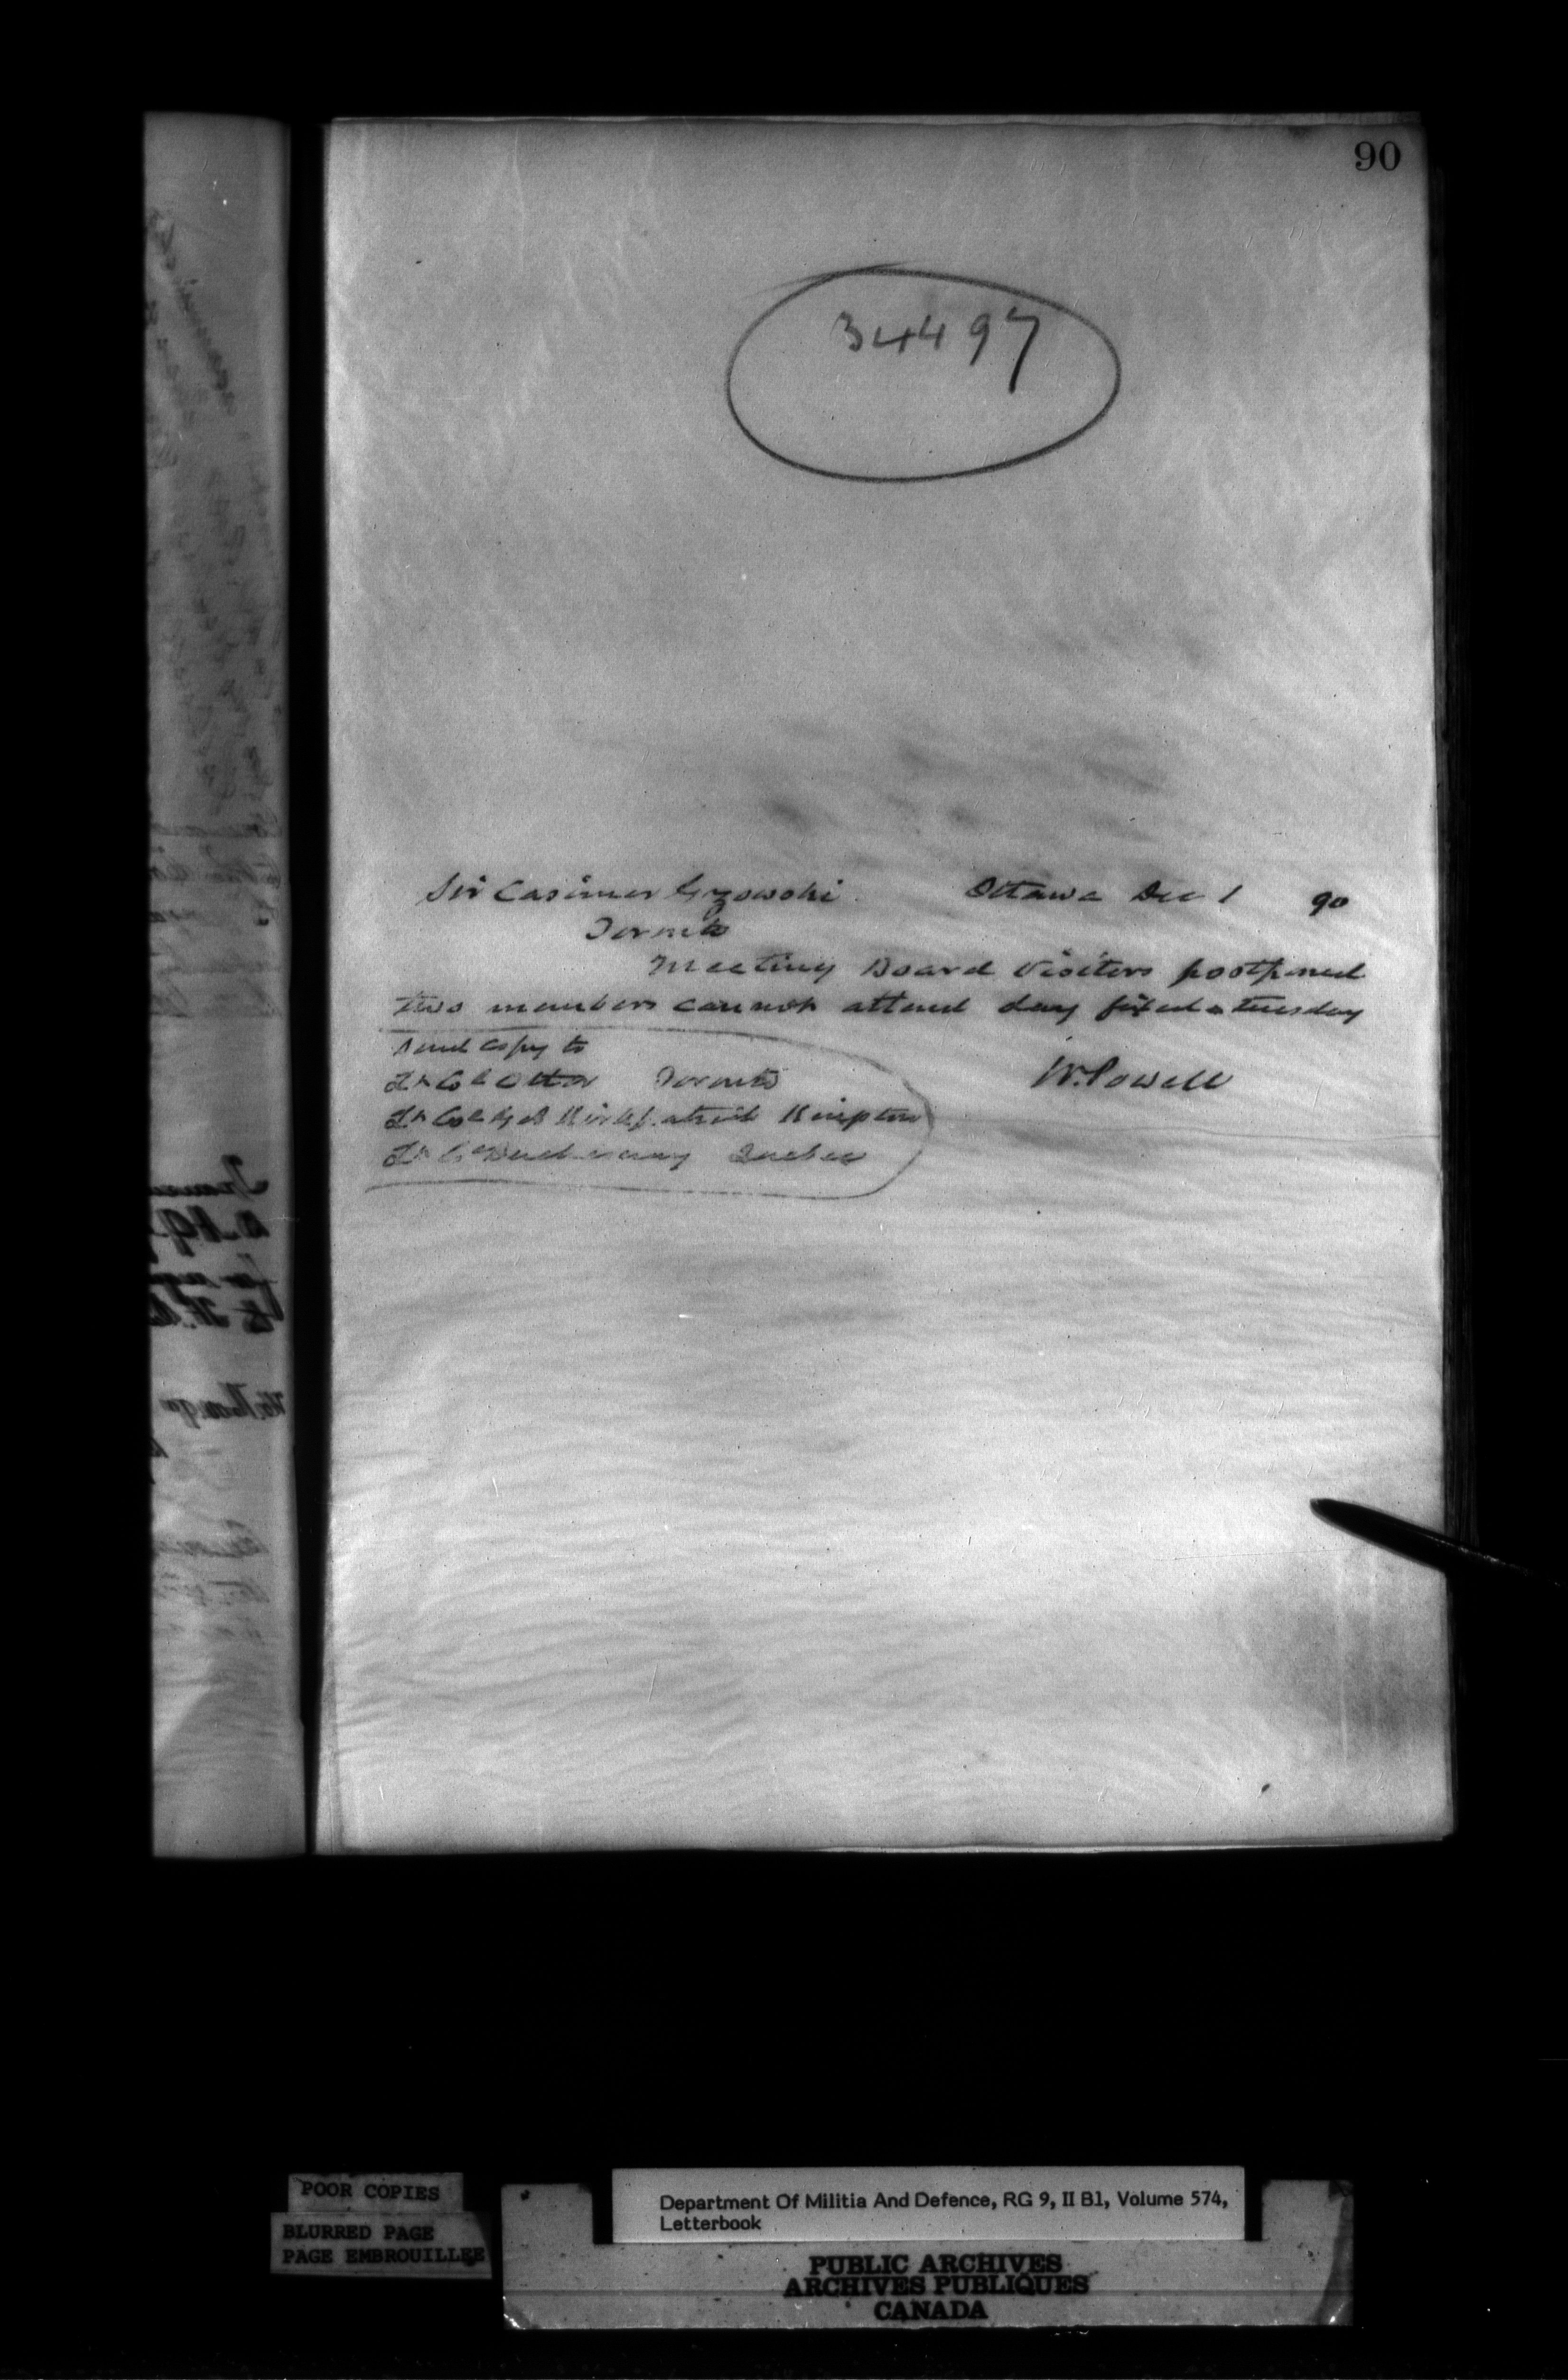 90
34497
Sir Casimer Gzowski Ottawa Dec 1 90
Toronto
Meeting Board Visitors postponed
two members cannot attend day fixed Tuesday
Send copy to
Lt Col Otter Toronto W. Powell
Lt Col G A Kirkpatrick Kingston
Lt Col Duchesnay Quebec
POOR COPIES
BLURRED PAGE
PAGE EMBROUILLEE
Department Of Militia And Defence, RG 9, II B1, Volume 574,
Letterbook
PUBLIC ARCHIVES
ARCHIVES PUBLIQUES
CANADA